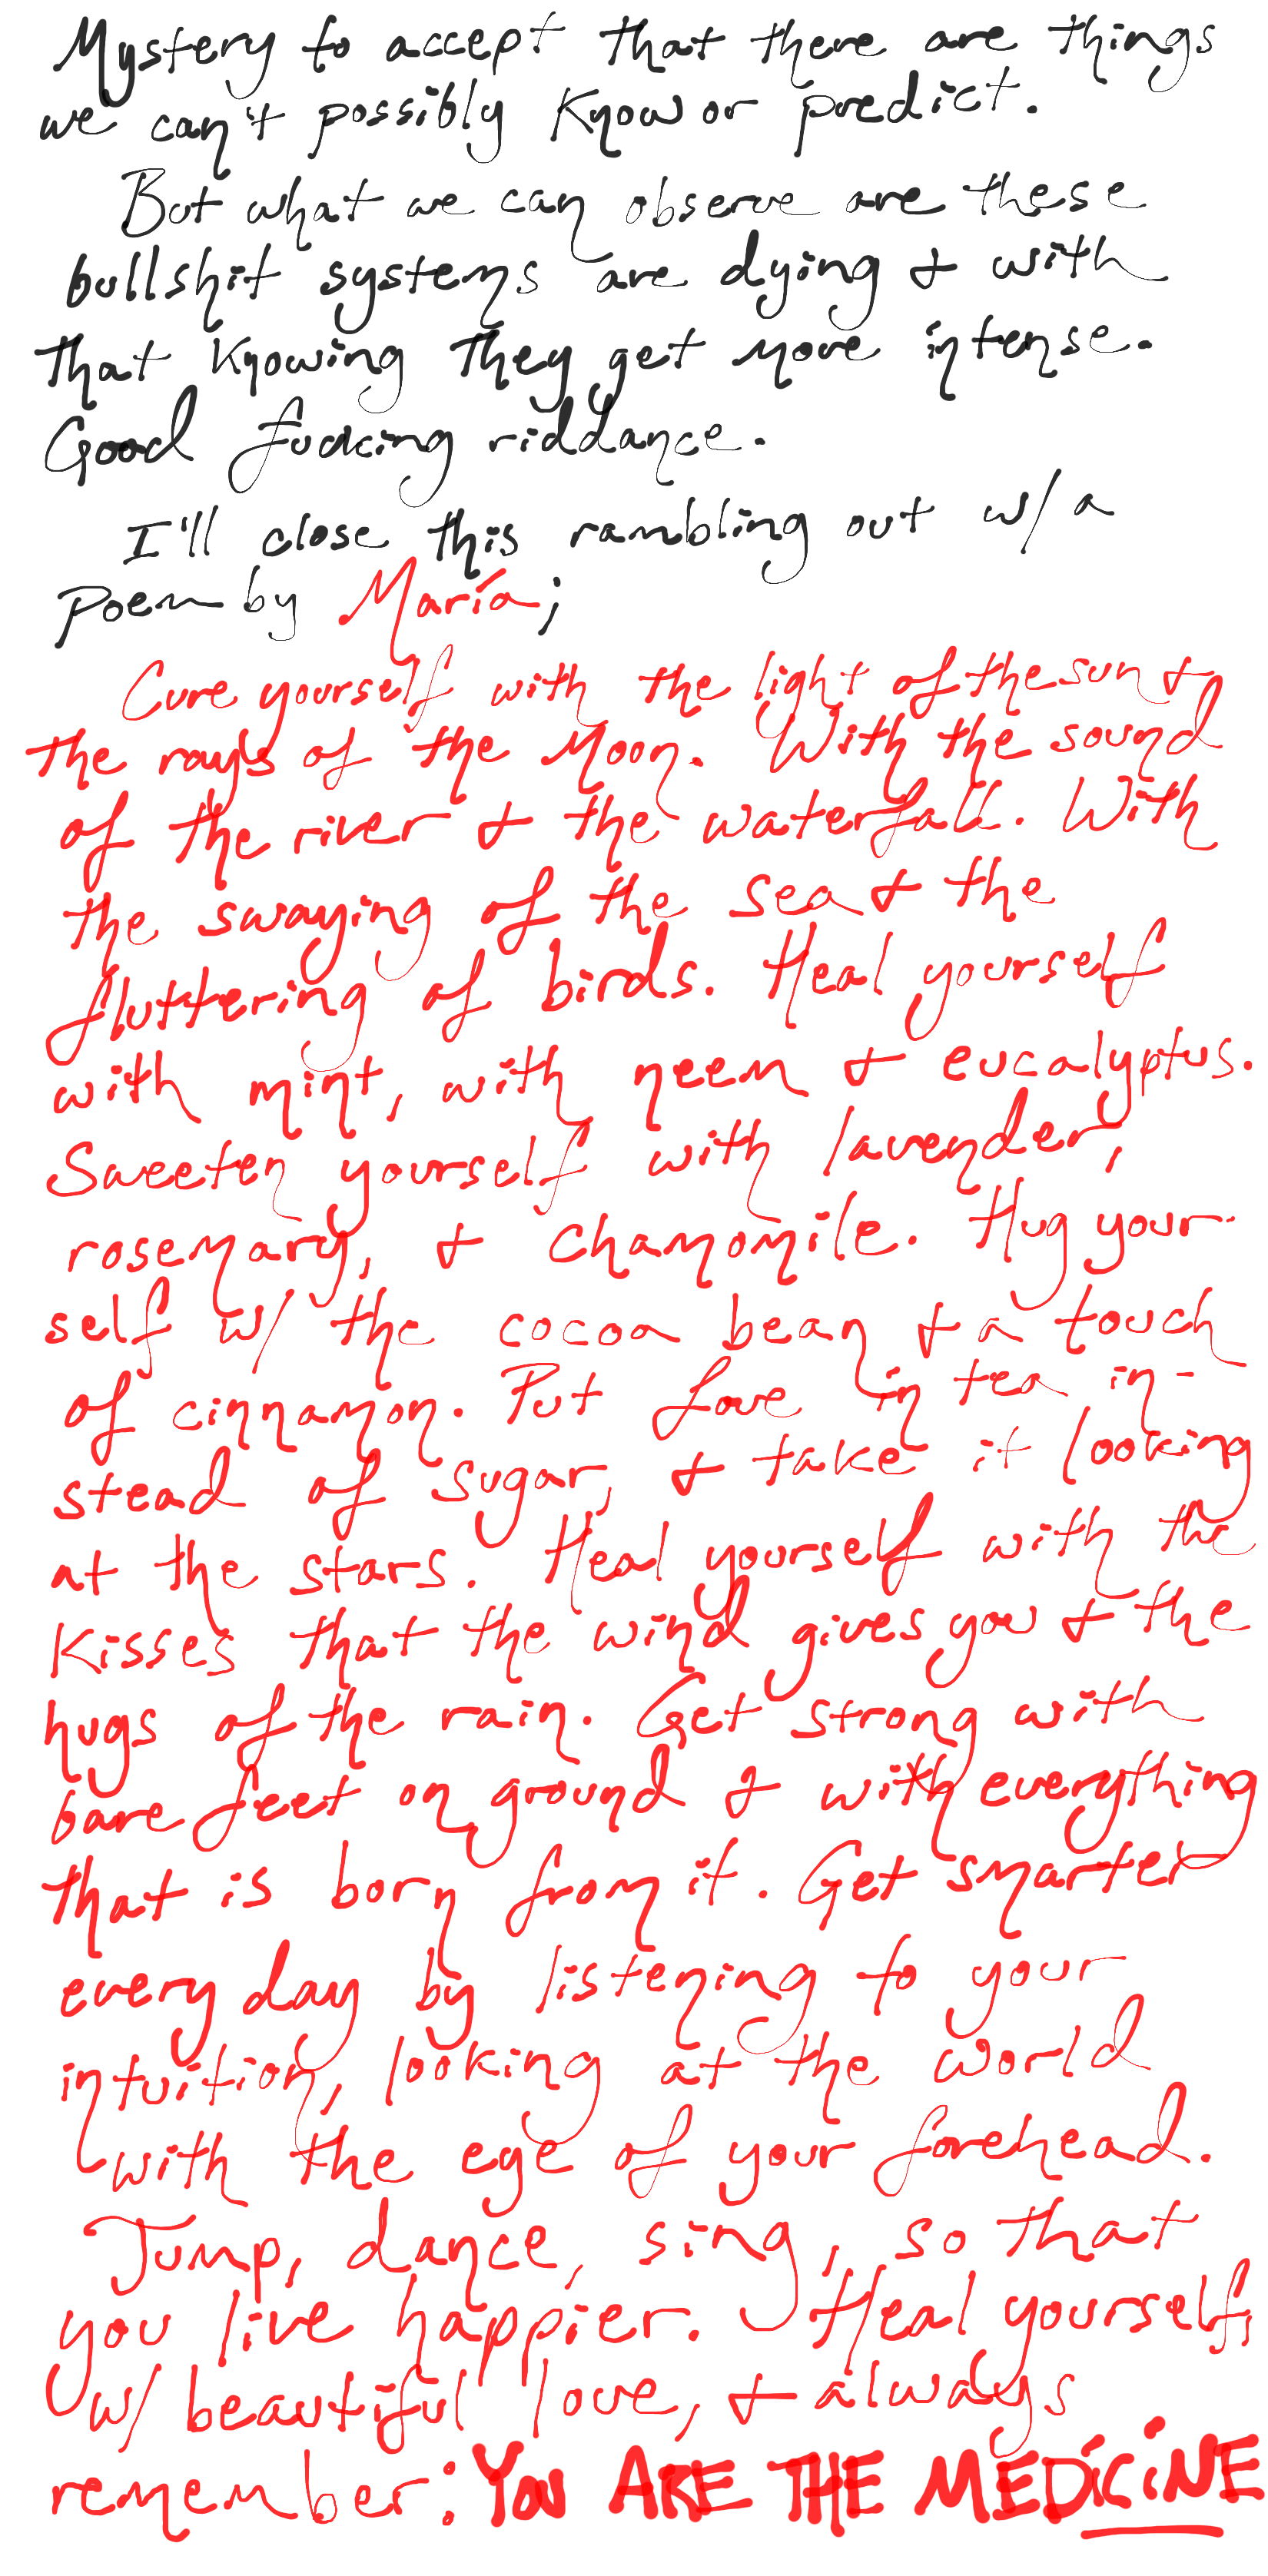 Mystery to accept that there are things
we can't possibly know or predict.
But what we can observe are these
bullshit systems are dying & with
that knowing they get more intense.
Good fucking riddance.
I'll close this rambling out w/ a
Poem by María;
Cure yourself with the light of the sun &
the rays of the Moon. With the sound
of the river & the waterfall. With
the swaying of the sea & the
fluttering of birds. Heal yourself
with mint, with neem & eucalyptus.
Sweeten yourself with lavender,
rosemary, & chamomile. Hug your-
self w/ the cocoa bean & a touch
of cinnamon. Put love in tea in-
stead of sugar, & take it looking
at the stars. Heal yourself with the
kisses that the wind gives you & the
hugs of the rain. Get strong with
bare feet on ground & with everything
that is born from it. Get smarter
every day by listening to your
intuition, looking at the world
with the eye of your forehead.
Jump, dance, sing, so that
you live happier. Heal yourself,
w/ beautiful love, & always
remember: YOU ARE THE MEDICINE